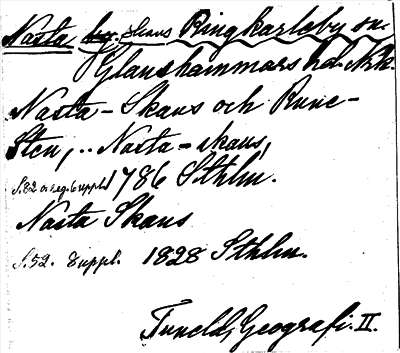 Nasta by. skans Ringkarleby sn.
Glanshammars hd. Nrk.
Nasta-Skans och Rune-
Sten, .. Nasta-skans,
S.82 o reg. 6 uppl. 1786 Sthlm.
Nasta Skans
S.52. 8 uppl. 1828 Sthlm.
Tuneld, Geografi. II.